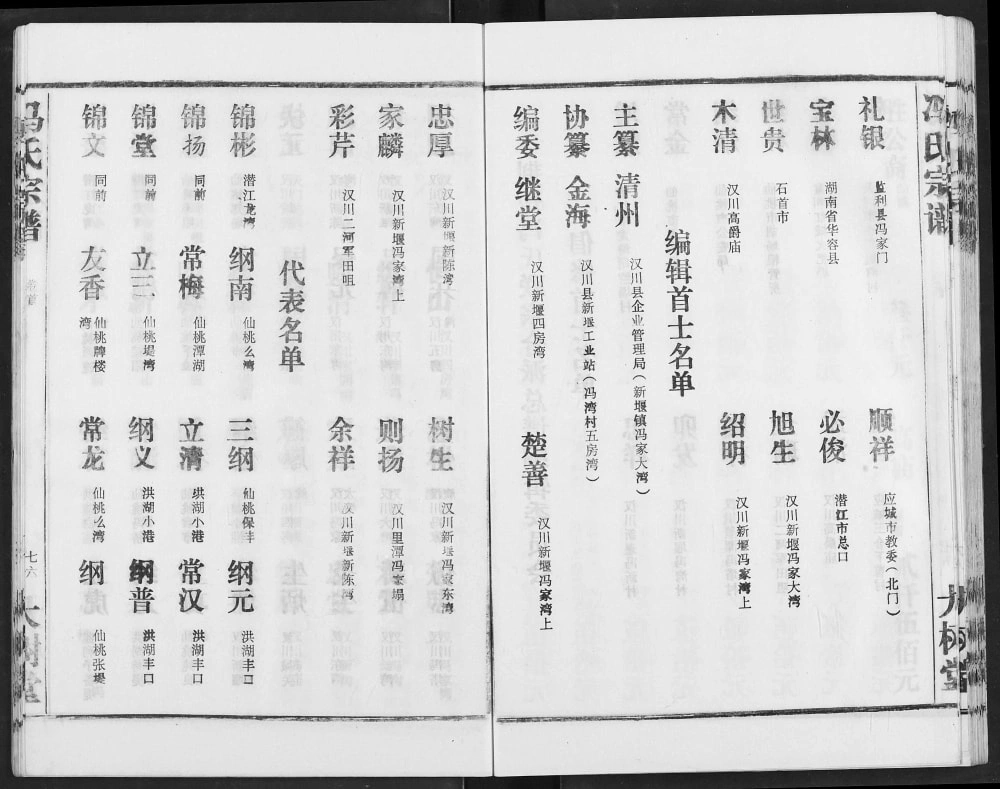 冯氏宗谱
大树堂
礼银 监利县冯家门 顺祥 应城市教委(北门)
宝林 湖南省华容县 必俊 潜江市总口
世贵 石首市 旭生 汉川新堰冯家大湾
木清 汉川高爵庙 绍明 汉川新堰冯家湾上
编辑首士名单
主纂 清州 汉川县企业管理局(新堰镇冯家大湾)
协纂 金海 汉川县新堰工业站(冯湾村五房湾)
编委 继堂 汉川新堰四房湾 楚善 汉川新堰冯家湾上
忠厚 汉川新堰新陈湾 树生 汉川新堰冯家东湾
家麟 汉川新堰冯家湾上 则扬 汉川里潭冯家塌
彩芹 汉川二河军田咀 余祥 汉川新堰新陈湾
代表名单
锦彬 潜江龙湾 纲南 仙桃么湾 三纲 仙桃保丰 纲元 洪湖丰口
锦扬 同前 常梅 仙桃潭湖 立清 洪湖小港 常汉 洪湖丰口
锦堂 同前 立三 仙桃堤湾 纲义 洪湖小港 纲普 洪湖丰口
锦文 同前 友香 仙桃牌楼湾 常龙 仙桃么湾 纲虎 仙桃张堤
冯氏宗谱
卷首
七六
大树堂